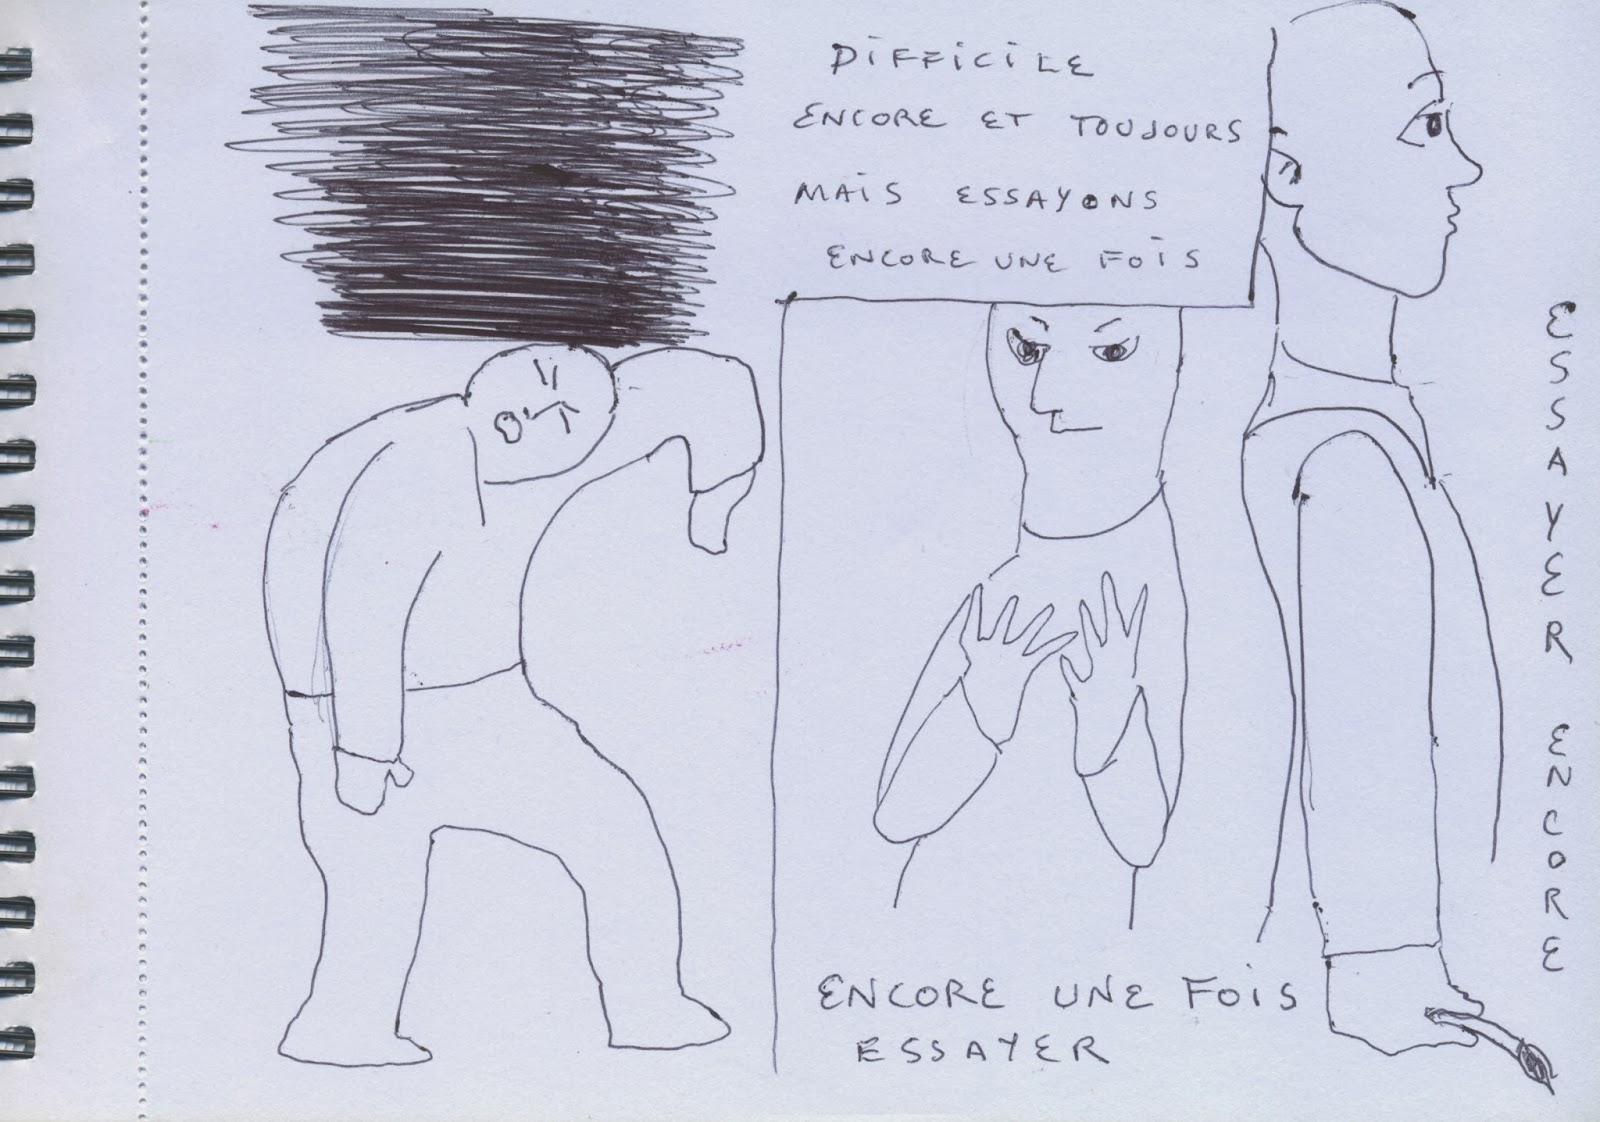 DIFFICILE
ENCORE ET TOUJOURS
MAIS ESSAYONS
ENCORE UNE FOIS
ENCORE UNE FOIS
ESSAYER
ESSAYER ENCORE